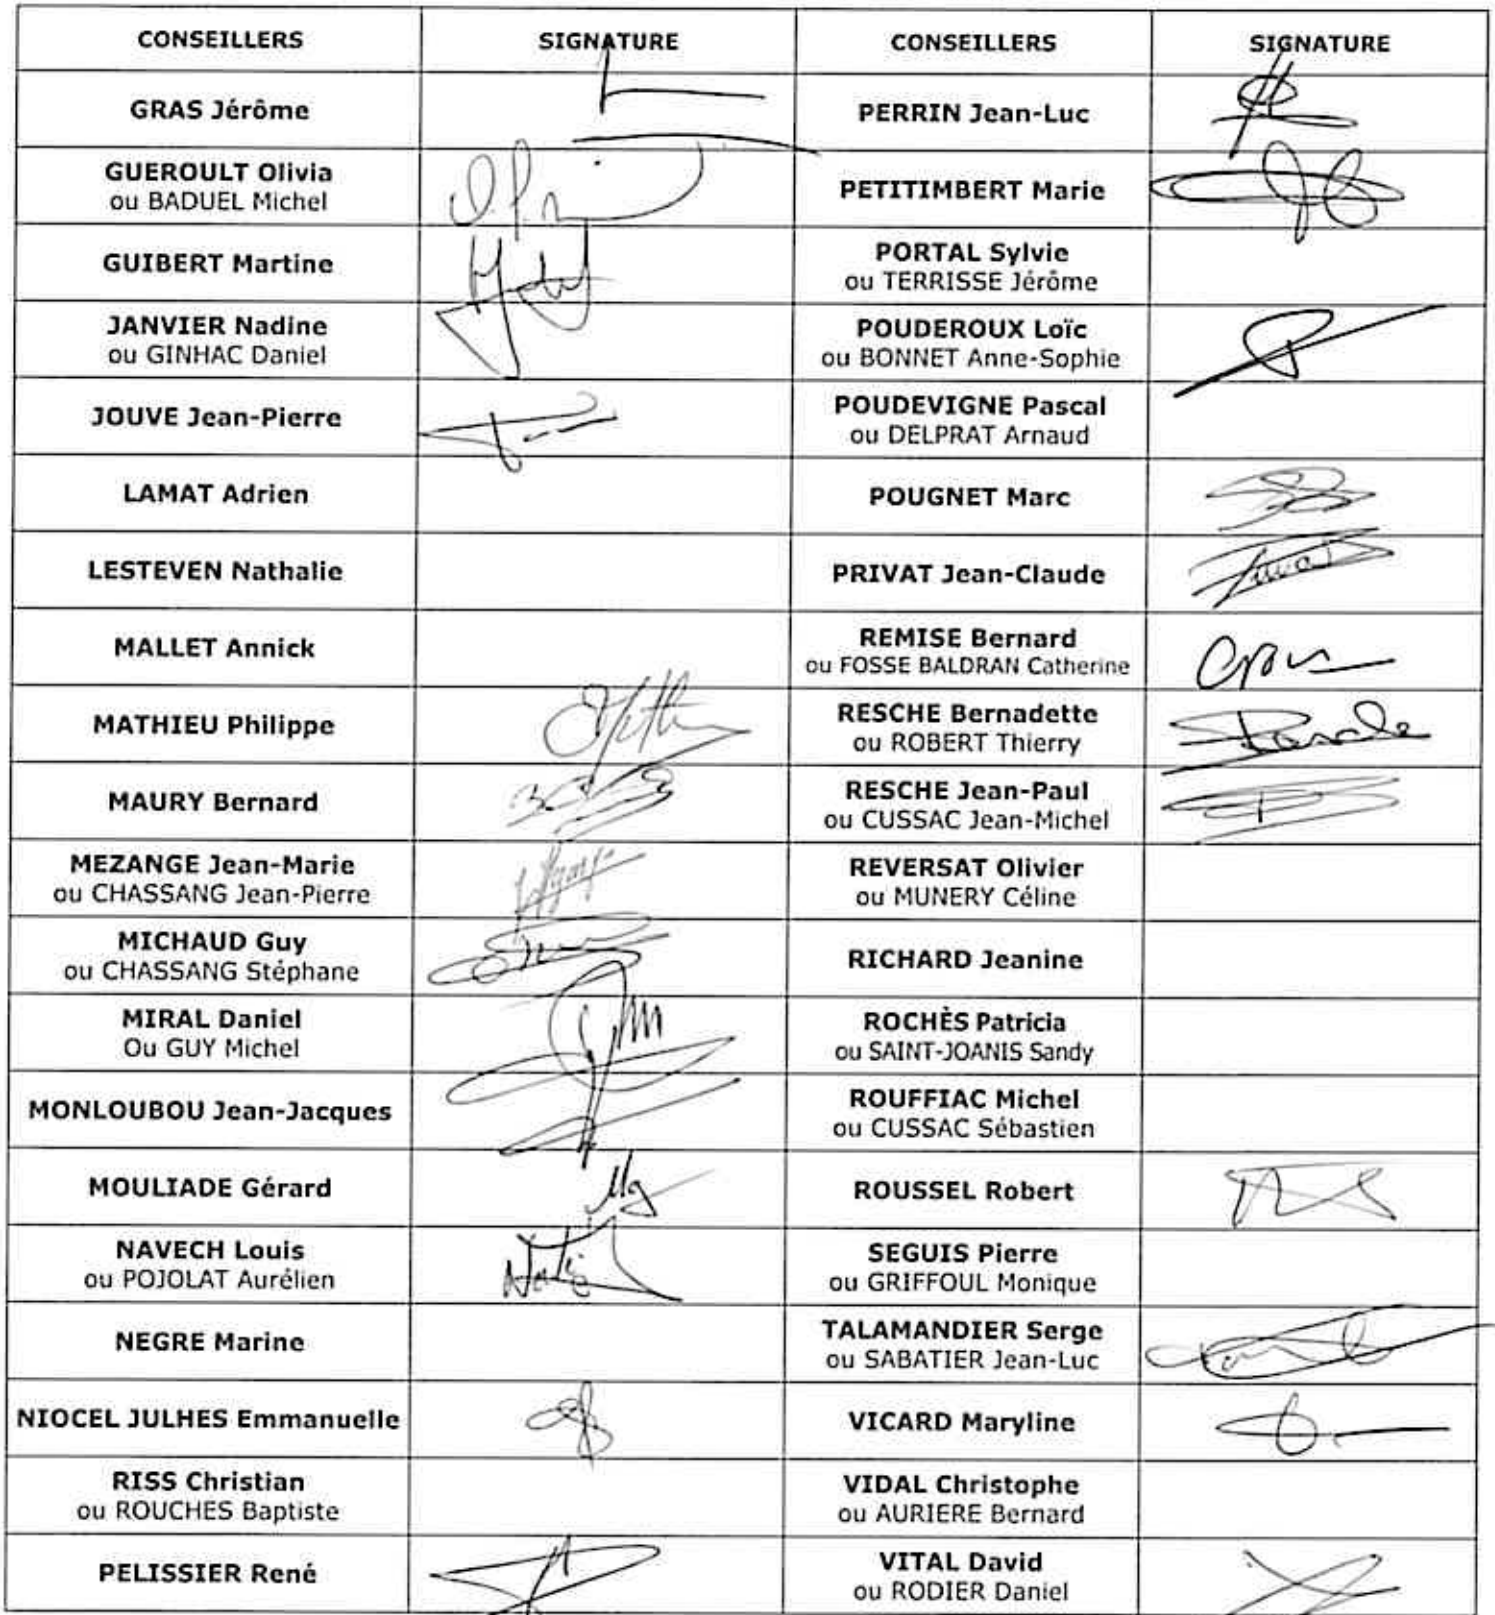 CONSEILLERS SIGNATURE CONSEILLERS SIGNATURE
GRAS Jérôme PERRIN Jean-Luc
GUEROULT Olivia
ou BADUEL Michel PETITIMBERT Marie
GUIBERT Martine PORTAL Sylvie
ou TERRISSE Jérôme
JANVIER Nadine
ou GINHAC Daniel POUDEROUX Loïc
ou BONNET Anne-Sophie
JOUVE Jean-Pierre POUDEVIGNE Pascal
ou DELPRAT Arnaud
LAMAT Adrien POUGNET Marc
LESTEVEN Nathalie PRIVAT Jean-Claude
MALLET Annick REMISE Bernard
ou FOSSE BALDRAN Catherine
MATHIEU Philippe RESCHE Bernadette
ou ROBERT Thierry
MAURY Bernard RESCHE Jean-Paul
ou CUSSAC Jean-Michel
MEZANGE Jean-Marie
ou CHASSANG Jean-Pierre REVERSAT Olivier
ou MUNERY Céline
MICHAUD Guy
ou CHASSANG Stéphane RICHARD Jeanine
MIRAL Daniel
Ou GUY Michel ROCHÈS Patricia
ou SAINT-JOANIS Sandy
MONLOUBOU Jean-Jacques ROUFFIAC Michel
ou CUSSAC Sébastien
MOULIADE Gérard ROUSSEL Robert
NAVECH Louis
ou POJOLAT Aurélien SEGUIS Pierre
ou GRIFFOUL Monique
NEGRE Marine TALAMANDIER Serge
ou SABATIER Jean-Luc
NIOCEL JULHES Emmanuelle VICARD Maryline
RISS Christian
ou ROUCHES Baptiste VIDAL Christophe
ou AURIERE Bernard
PELISSIER René VITAL David
ou RODIER Daniel